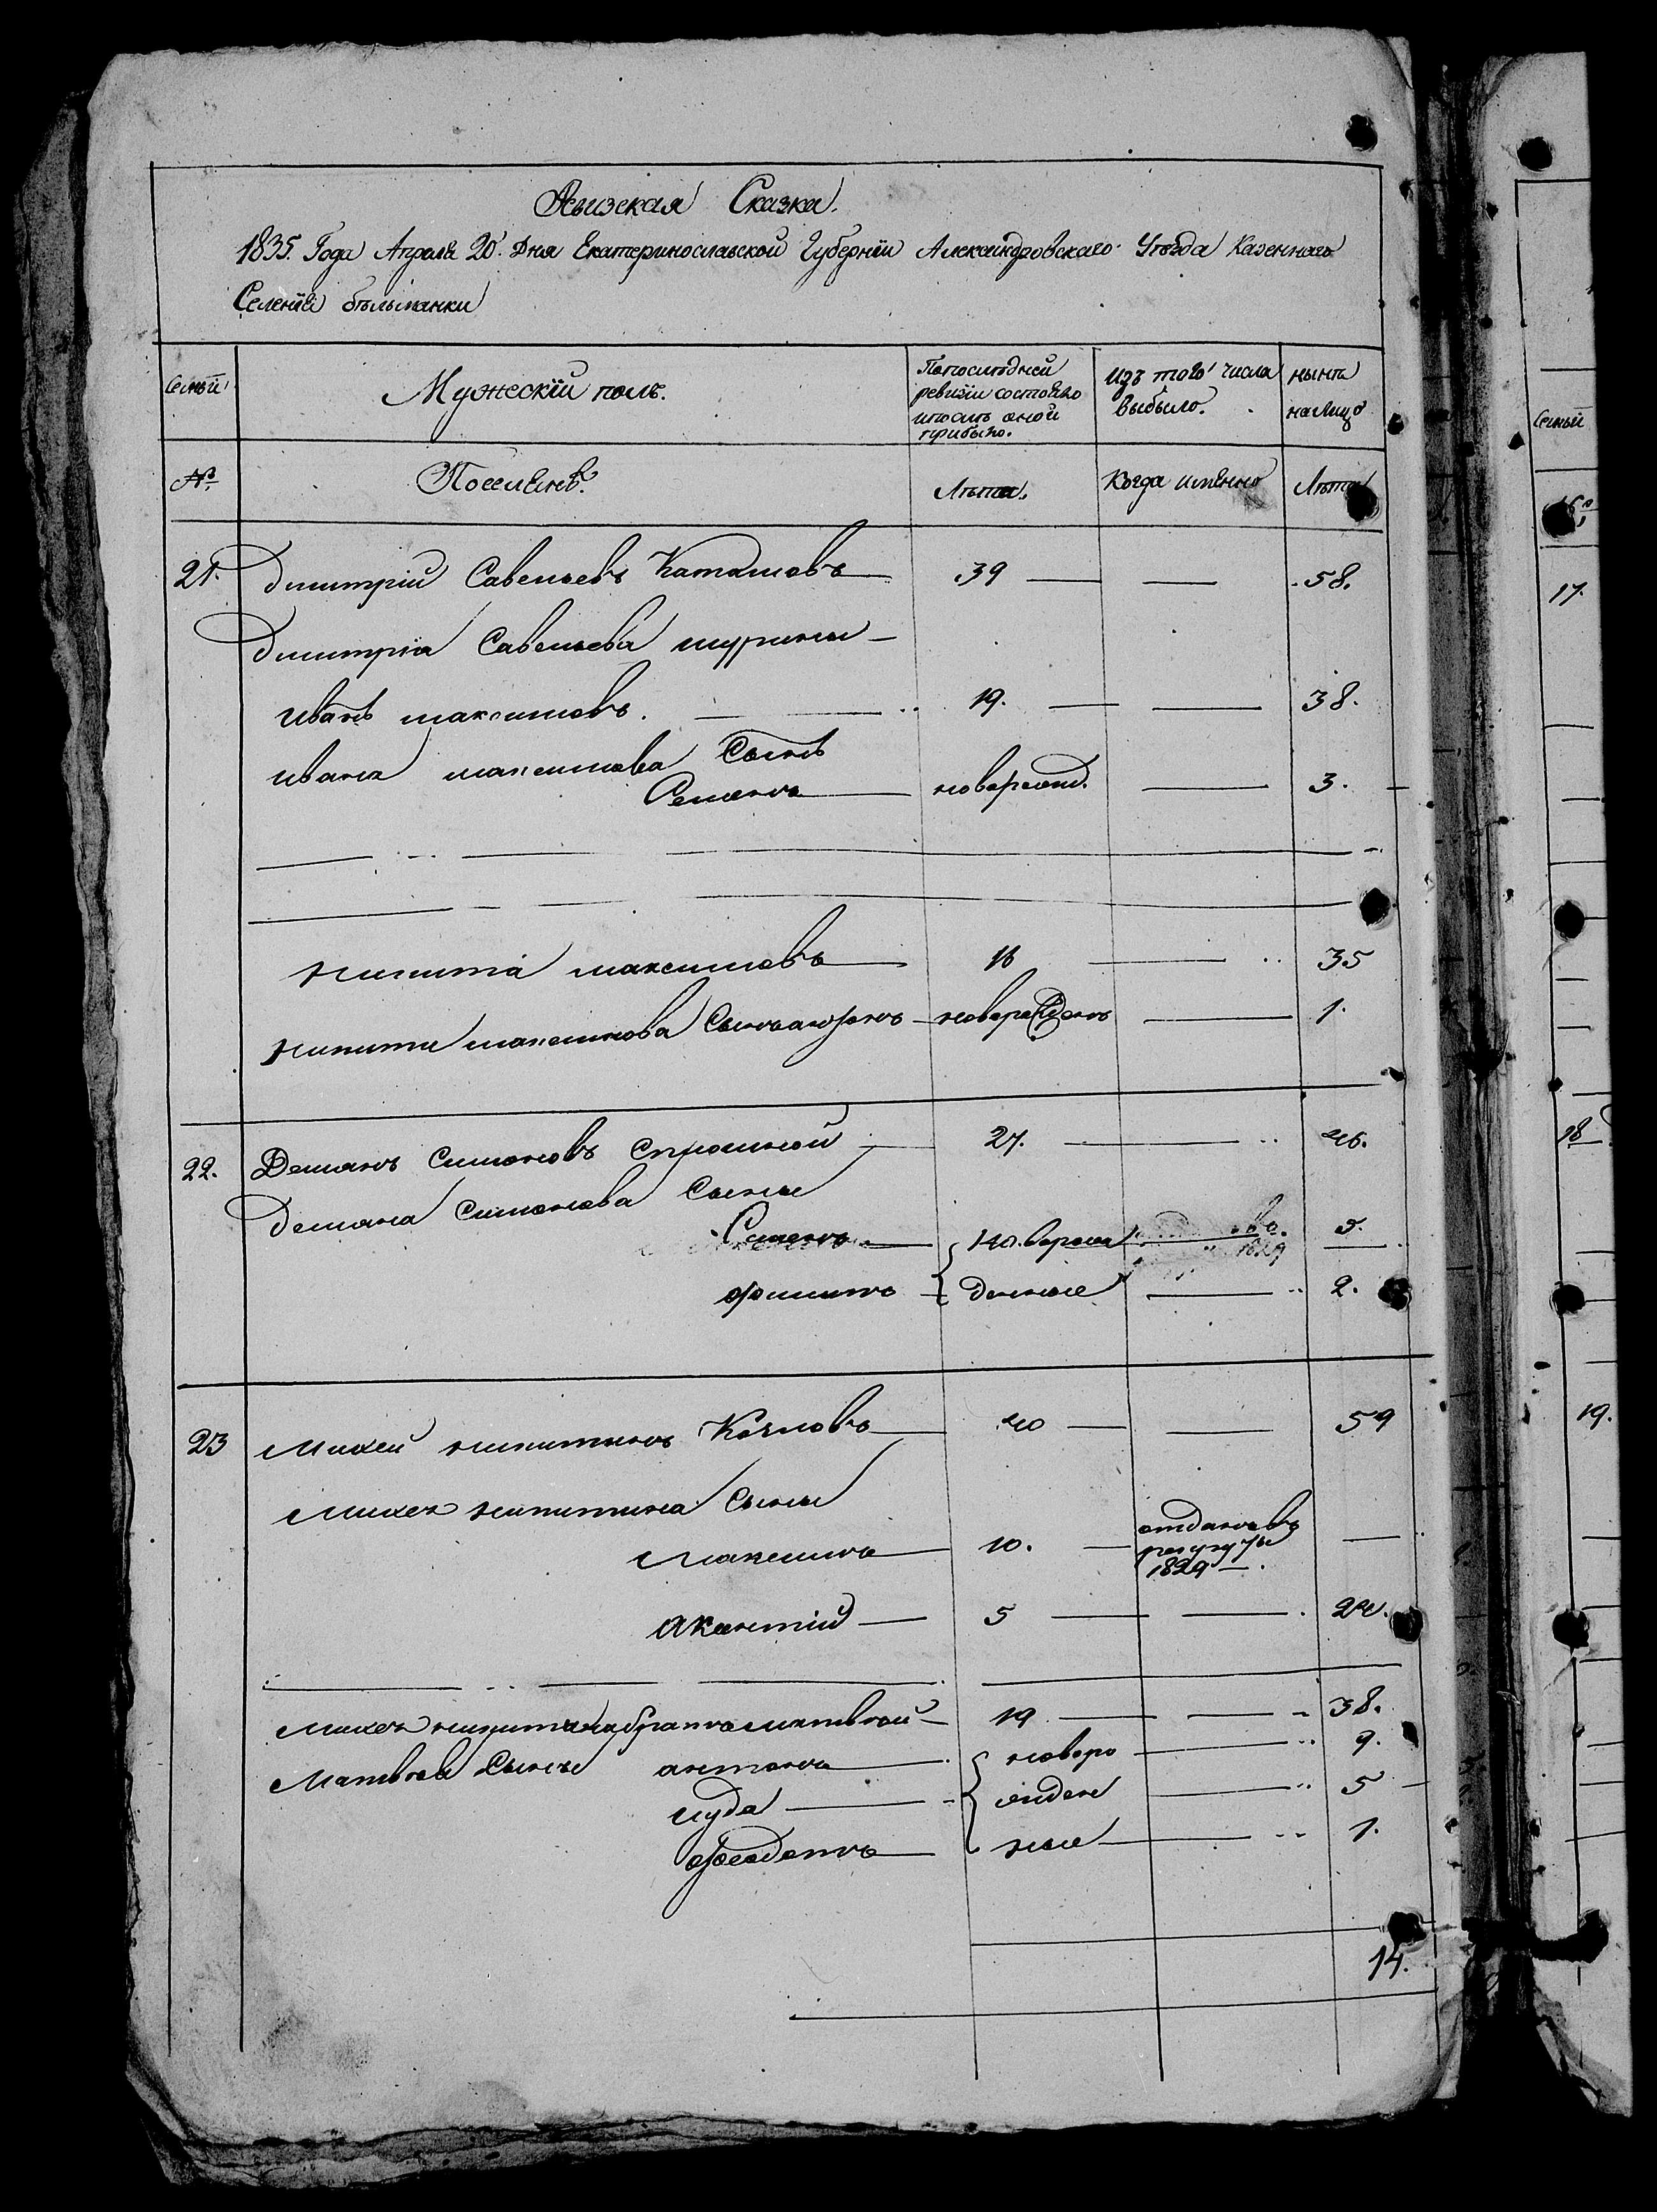 Ревизская Сказка.
1835. Года Апреля 20. Дня Екатеринославской Губерніи Александровскаго Уѣзда Казеннаго
Селенія бѣльманки
Семьи
Мужескій полъ.
Попоследней ревизіи состояло ипослѣ оной прибыло.
Изъ того числа выбыло.
нынѣ налицо
№
Поселянѣ.
Лѣта.
Когда имянно
Лѣта
21. Димитрій Савельевъ 39 58.
Димитрія Савельева шурины
иванъ максимовъ. 19. 38.
ивана максимова Сынъ
Семенъ новорожд. 3.
никита максимовъ 16 35
никиты максимова Сынъ новорожденъ 1.
22. Демянъ Симоновъ 27. 46.
демяна Симонова Сыны
Семенъ новорож 5.
филипъ денные 2.
23 Михей никитинъ Козловъ 40 59
Михея никитина Сыны
Максимъ 10. отданъ въ рекруты 1829
Аксентій 5 24.
Михея никитина братъ матвей 19 38.
Матвея Сыны антонъ новоро 9.
иуда жден 5
феодотъ ные 1.
14.
Семьи
17.
18
19.